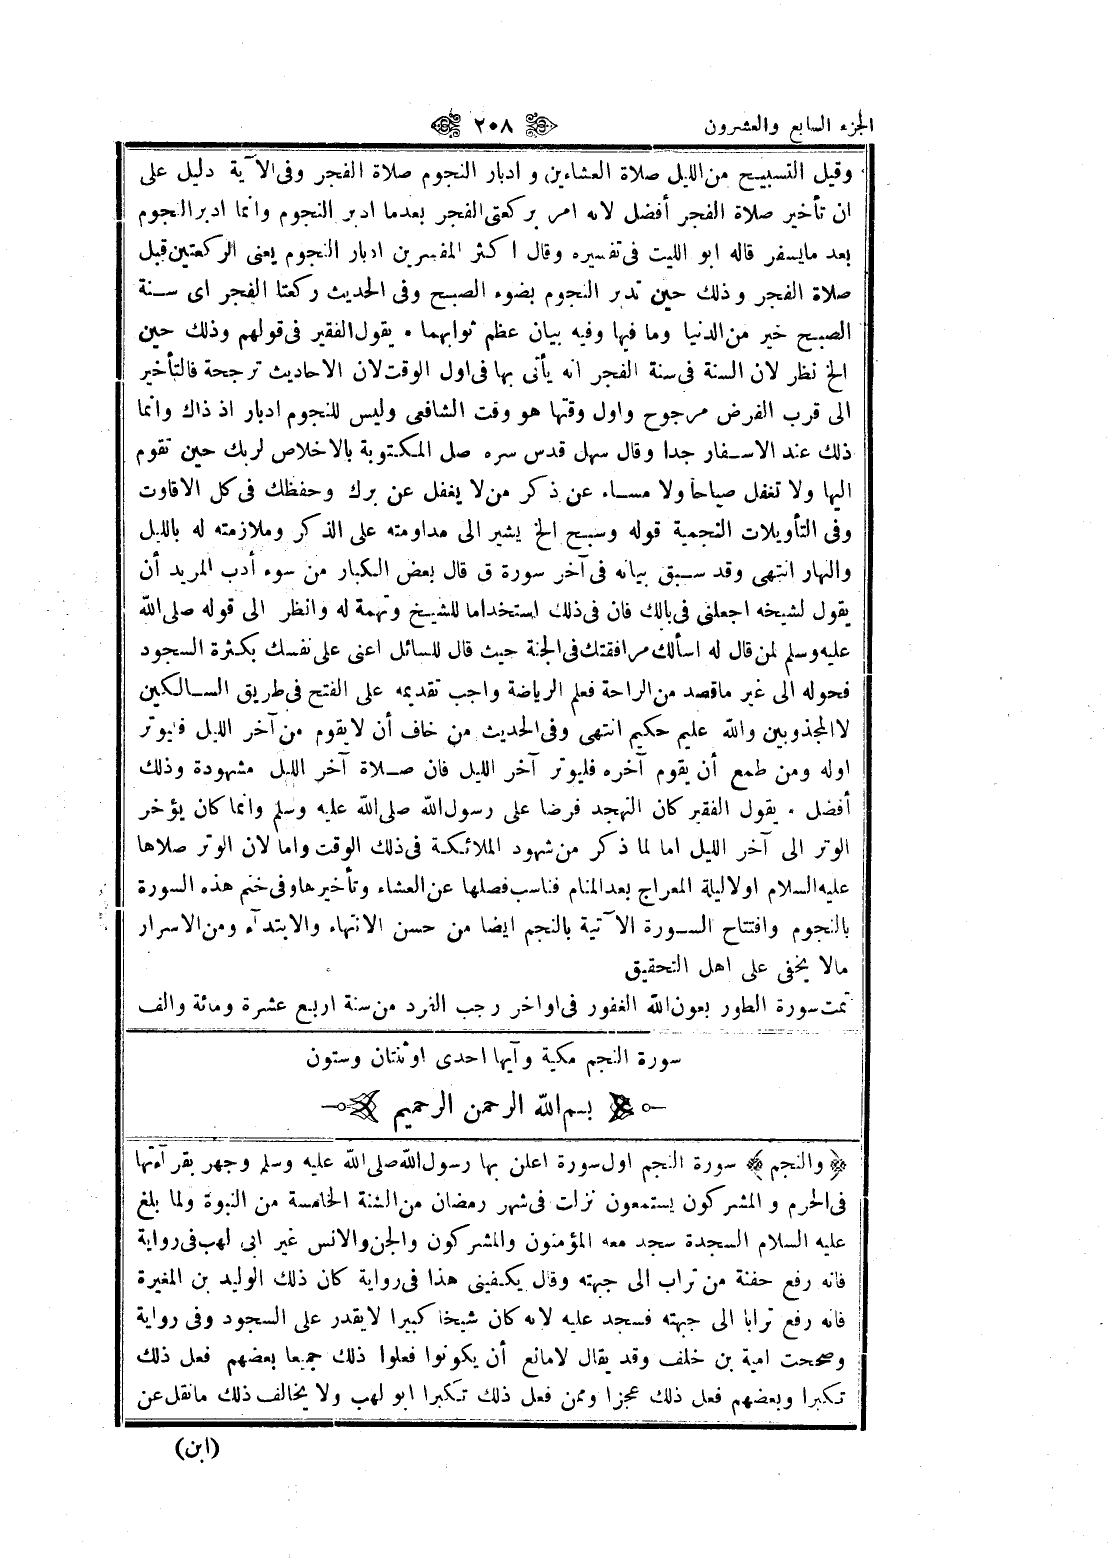 الجزء السابع والعشرون
٢٠٨
وقيل التسبيح من الليل صلاة العشاءين و ادبار النجوم صلاة الفجر وفى الآية دليل على
ان تأخير صلاة الفجر أفضل لانه امر بركعتى الفجر بعدما ادبر النجوم وانما ادبر النجوم
بعد مايسفر قاله ابو الليث فى تفسيره وقال اكثر المفسرين ادبار النجوم يعنى الركعتين قبل
صلاة الفجر وذلك حين تدبر النجوم بضوء الصبح وفى الحديث ركعتا الفجر اى سنة
الصبح خير من الدنيا وما فيها وفيه بيان عظم ثوابهما ٠ يقول الفقير فى قولهم وذلك حين
الخ نظر لان السنة فى سنة الفجر انه يأتى بها فى اول الوقت لان الاحاديث ترجحة فالتأخير
الى قرب الفرض مرجوح واول وقتها هو وقت الشافعى وليس للنجوم ادبار اذ ذاك وانما
ذلك عند الاسفار جدا وقال سهل قدس سره صل المكتوبة بالاخلاص لربك حين تقوم
اليها ولا تغفل صباحا ولا مساء عن ذكر من لا يغفل عن برك وحفظك فى كل الاقاوت
وفى التأويلات النجمية قوله وسبح الخ يشير الى مداومته على الذكر وملازمته له بالليل
والنهار انتهى وقد سبق بيانه فى آخر سورة ق قال بعض الكبار من سوء أدب المريد أن
يقول لشيخه اجعلنى فى بالك فان فى ذلك استخداما للشيخ وتهمة له وانظر الى قوله صلى الله
عليه وسلم لمن قال له اسألك مرافقتك فى الجنة حيث قال للسائل اعنى على نفسك بكثرة السجود
فحوله الى غير ماقصد من الراحة فعلم الرياضة واجب تقديمه على الفتح فى طريق السالكين
لا المجذوبين والله عليم حكيم انتهى وفى الحديث من خاف أن لايقوم من آخر الليل فليوتر
اوله ومن طمع أن يقوم آخره فليوتر آخر الليل فان صلاة آخر الليل مشهودة وذلك
أفضل ٠ يقول الفقير كان التهجد فرضا على رسول الله صلى الله عليه وسلم وانما كان يؤخر
الوتر الى آخر الليل اما لما ذكر من شهود الملائكة فى ذلك الوقت واما لان الوتر صلاها
عليه السلام اولا ليلة المعراج بعد المنام فناسب فصلها عن العشاء وتأخيرها وفى ختم هذه السورة
بالنجوم وافتتاح السورة الآتية بالنجم ايضا من حسن الانتهاء والابتدآء ومن الاسرار
مالا يخفى على اهل التحقيق
تمت سورة الطور بعون الله الغفور فى اواخر رجب الفرد من سنة اربع عشرة ومائة والف
سورة النجم مكية وآيها احدى او ثنتان وستون
بسم الله الرحمن الرحيم
﴿ والنجم ﴾ سورة النجم اول سورة اعلن بها رسول الله صلى الله عليه وسلم وجهر بقرآءتها
فى الحرم و المشركون يستمعون نزلت فى شهر رمضان من السنة الخامسة من النبوة ولما بلغ
عليه السلام السجدة سجد معه المؤمنون والمشركون والجن والانس غير ابى لهب فى رواية
فانه رفع حفنة من تراب الى جبهته وقال يكفينى هذا فى رواية كان ذلك الوليد بن المغيرة
فانه رفع ترابا الى جبهته فسجد عليه لانه كان شيخا كبيرا لايقدر على السجود وفى رواية
وصححت امية بن خلف وقد يقال لامانع أن يكونوا فعلوا ذلك جميعا بعضهم فعل ذلك
تكبرا وبعضهم فعل ذلك عجزا وممن فعل ذلك تكبرا ابو لهب ولا يخالف ذلك مانقل عن
(ابن)